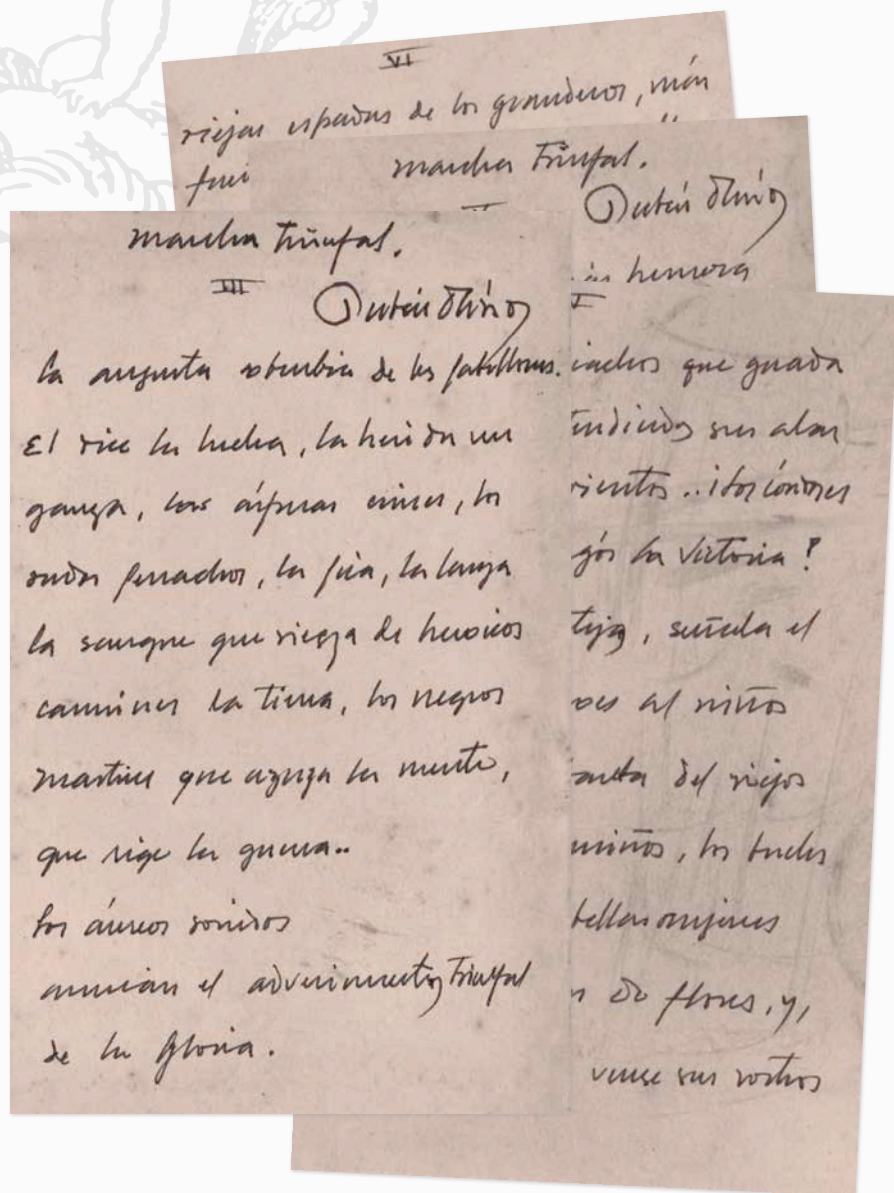 VI
viejas espadas de los granaderos, más
fuer
marcha Triunfal.
Rubén Darío
más hermosa
marcha Triunfal.
III
Rubén Darío
la augusta soberbia de los pabellones.
El dice la lucha, la herida ven
ganza, las ásperas crines, los
rudos penachos, la pica, la lanza
la sangre que riega de heroicos
carmines la tierra, los negros
mastines que azuza la muerte,
que rige la guerra..
los áureos sonidos
anuncian el advenimiento Triunfal
de la Gloria.
icachos que guarda
endiendo sus alas
vientos..¡los cóndores
gó la victoria!
señala el
oes al niño
barba del viejo
miño, los bucles
bellas mujeres
n de flores, y,
vense sus rostros